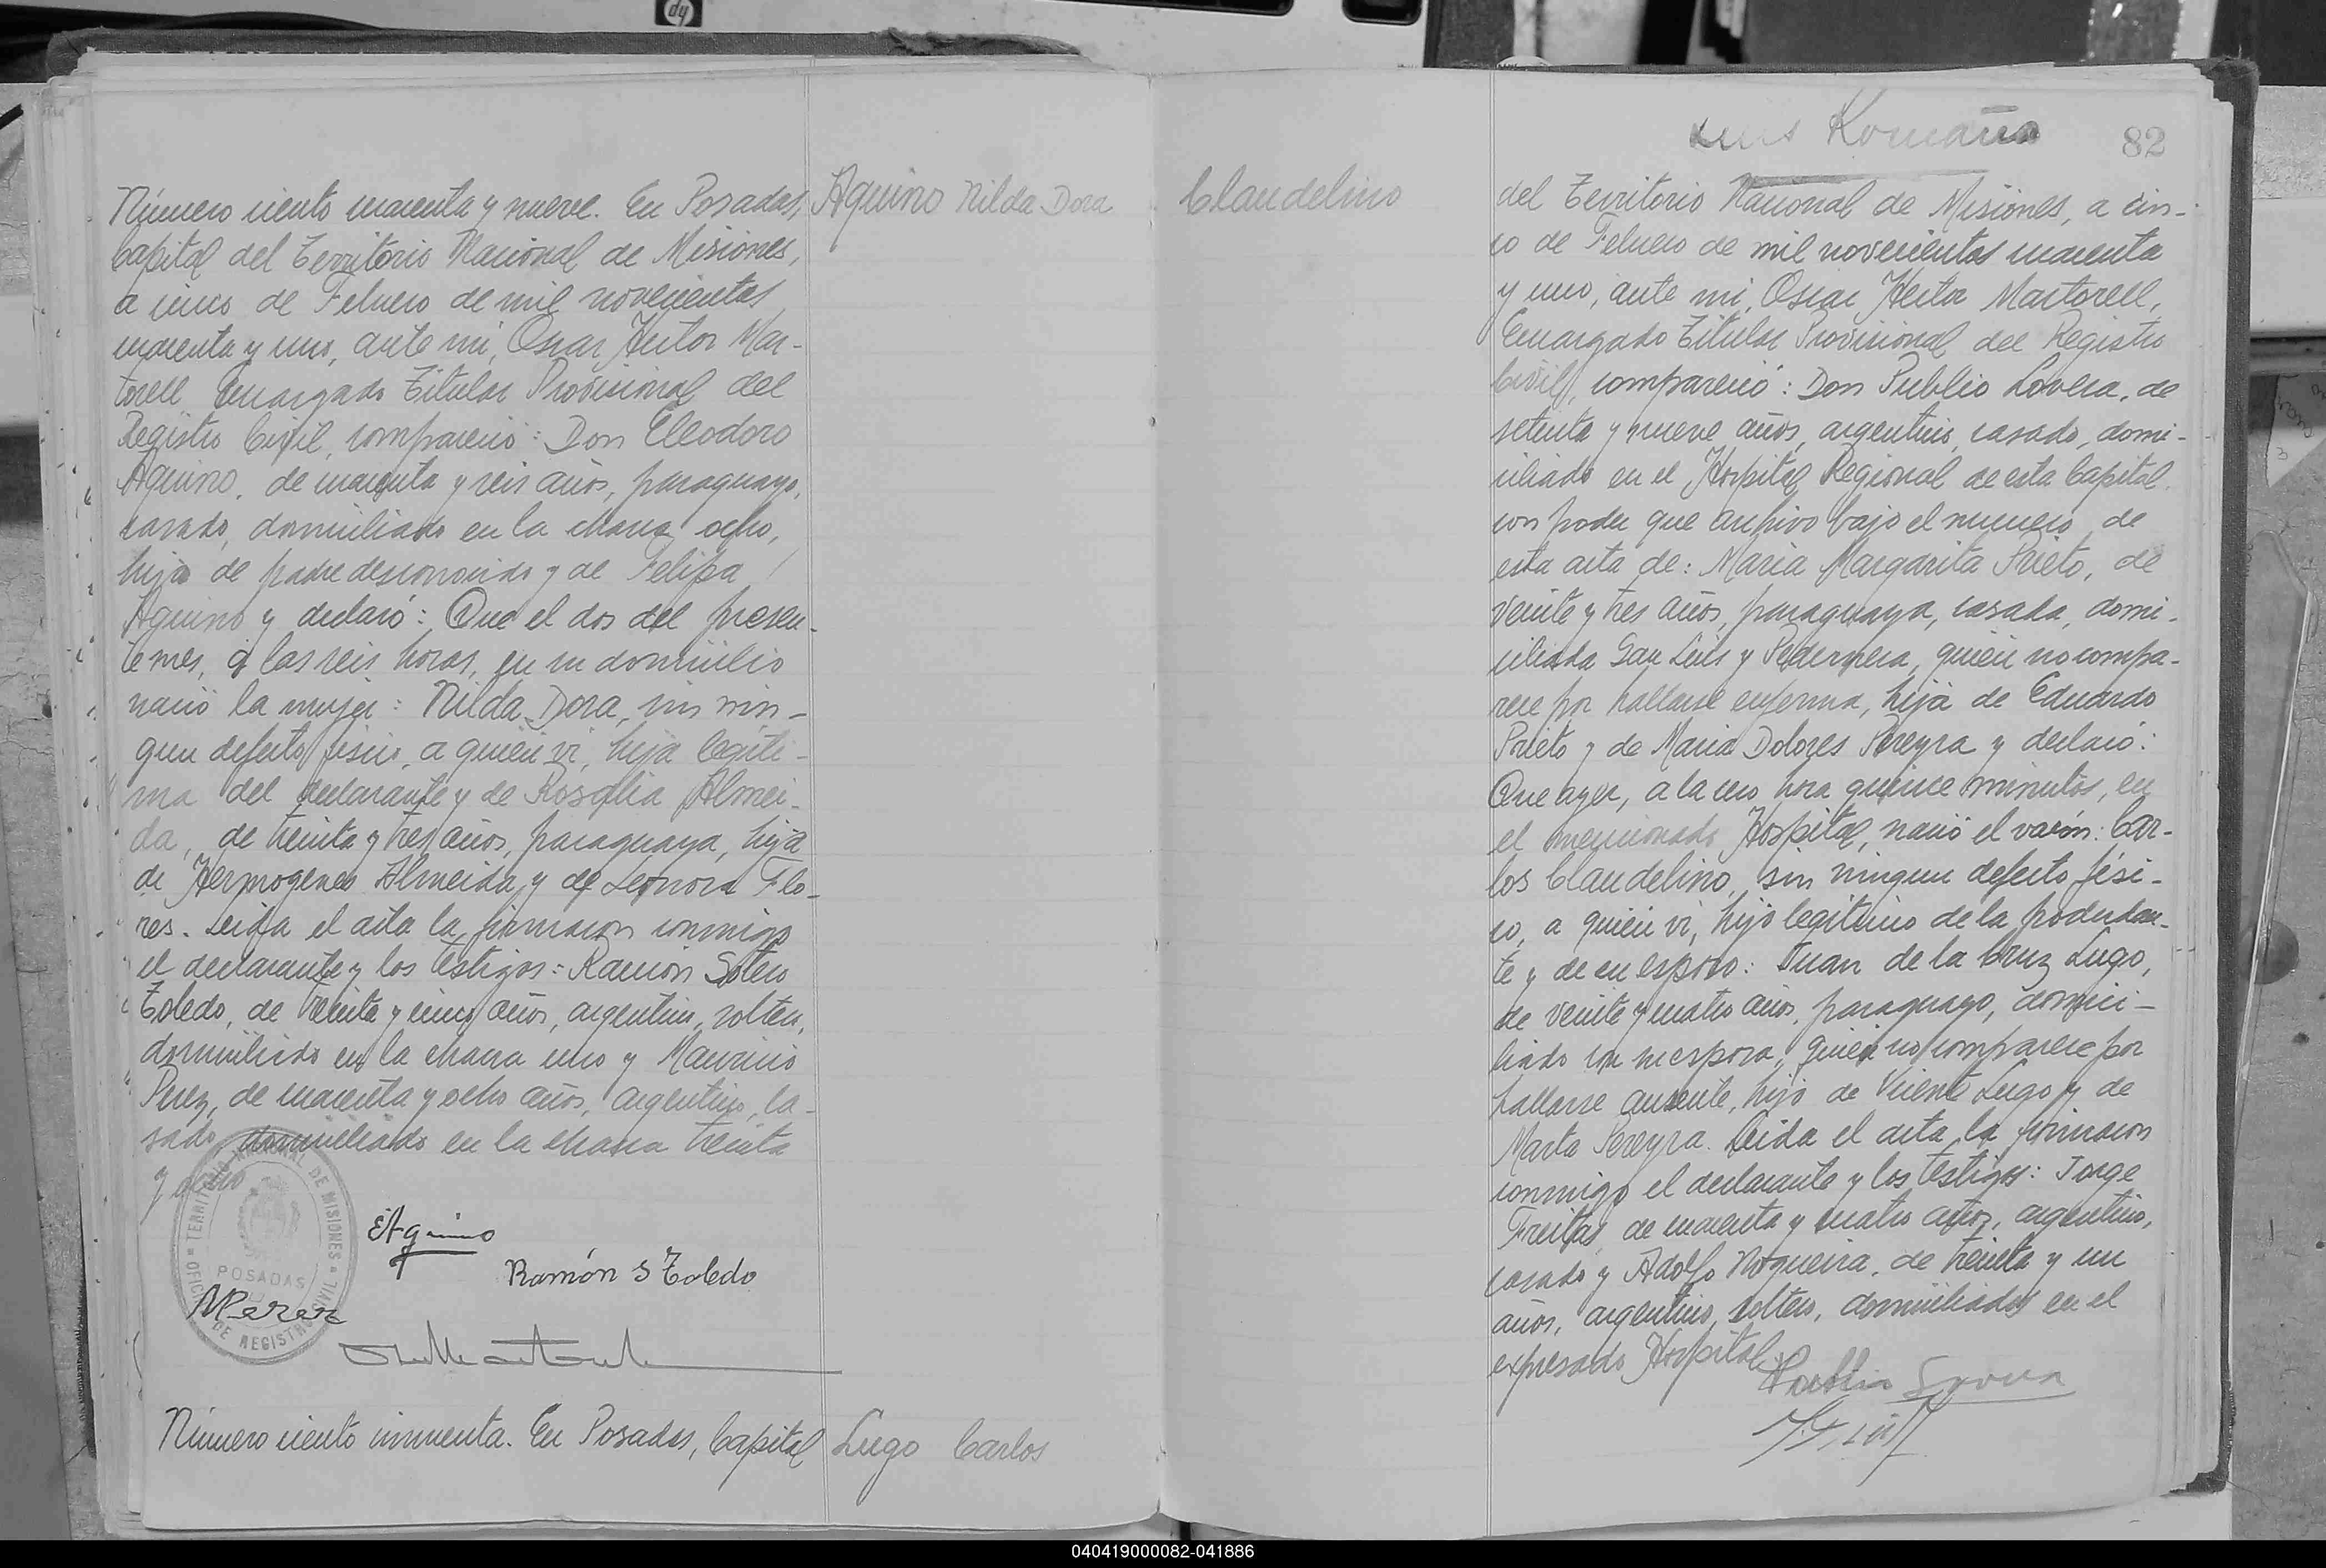 Número ciento cuarenta y nueve. En Posadas,
Capital del Territorio Nacional de Misiones,
a cinco de Febrero de mil novecientos
cuarenta y uno, ante mi, Oscar Hector Mar-
torell Encargado Titular Provisional del
Registro Civil, compareció: Don Eleodoro
Aquino, de cuarenta y seis años, paraguayo,
casado, domiciliado en la chacra ocho,
hijo de padre desconocido y de Felipa
Aquino y declaró: Que el dos del presen-
te mes, a las seis horas, en su domicilio
nació la mujer: Nilda Dora, sin nin-
gun defecto fisico, a quién vi, hija legiti-
ma del declarante y de Rosalia Almei-
da, de treinta y tres años, paraguaya, hija
de Hermogenes Almeida y de Leonora Flo-
res. Leida el acta la firmaron conmigo
el declarante y los testigos: Ramón Sotero
Toledo, de treinta y cinco años, argentino, soltero,
domiciliado en la chacra uno y Mauricio
Perez, de cuarenta y ocho años, argentino, ca-
sado, domiciliado en la chacra treinta
y
TERRITORIO NACIONAL DE MISIONES
POSADAS
DE REGISTRO
EAquino
Ramón S Toledo
MPerez
Número ciento cincuenta. En Posadas, Capital
Aquino Nilda Dora
Lugo Carlos
Claudelino
Luis Romaña
82
del Territorio Nacional de Misiones, a cin-
co de Febrero de mil novecientos cuarenta
y uno, ante mi, Oscar Hector Martorell,
Encargado Titular Provisional del Registro
Civil, compareció: Don Publio Lovera, de
setenta y nueve años, argentino, casado, domi-
ciliado en el Hospital Regional de esta Capital
con poder que archivo bajo el numero de
esta acta de: Maria Margarita Prieto, de
veinte y tres años, paraguaya, casada, domi-
ciliada San Luis y Pedernera, quién no compa-
rece por hallarse enferma, hija de Eduardo
Prieto y de Maria Dolores Pereyra y declaró:
Que ayer, a la cero hora quince minutos, en
el mencionado Hospital, nació el varón: Car-
los Claudelino, sin ningun defecto fisi-
co, a quién vi, hijo legitimo de la poderdan-
te y de su esposo: Juan de la Cruz Lugo,
de veinte y cuatro años, paraguayo, domici-
liado con su esposa, quién no comparece por
hallarse ausente, hijo de Vicente Lugo y de
Marta Pereyra. Leida el acta la firmaron
conmigo el declarante y los testigos: Jorge
Freitas, de cuarenta y cuatro años, argentino,
casado y Adolfo Nogueira, de treinta y un
años, argentino, soltero, domiciliados en el
expresado Hospital.
Publio Lovera
040419000082-041886